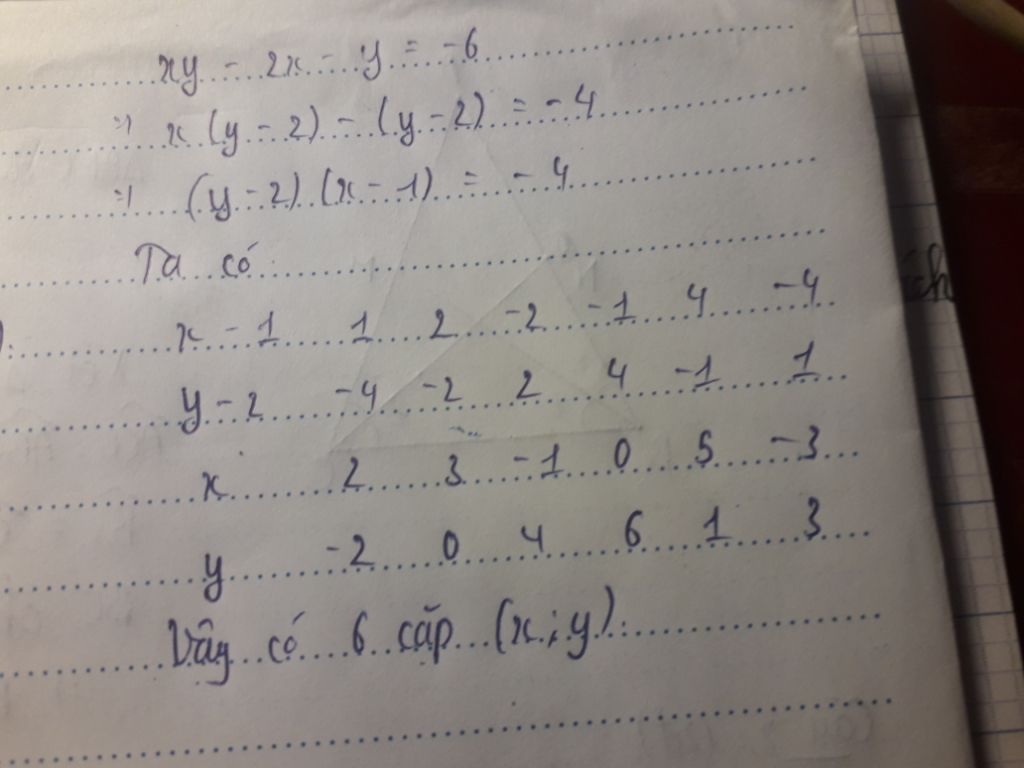 xy - 2x - y = -6
=> x (y - 2) - (y - 2) = -4
=> (y - 2) (x - 1) = -4
Ta có
x - 1 1 2 -2 -1 4 -4
y - 2 -4 -2 2 4 -1 1
x 2 3 -1 0 5 -3
y -2 0 4 6 1 3
Vậy có 6 cặp (x; y).